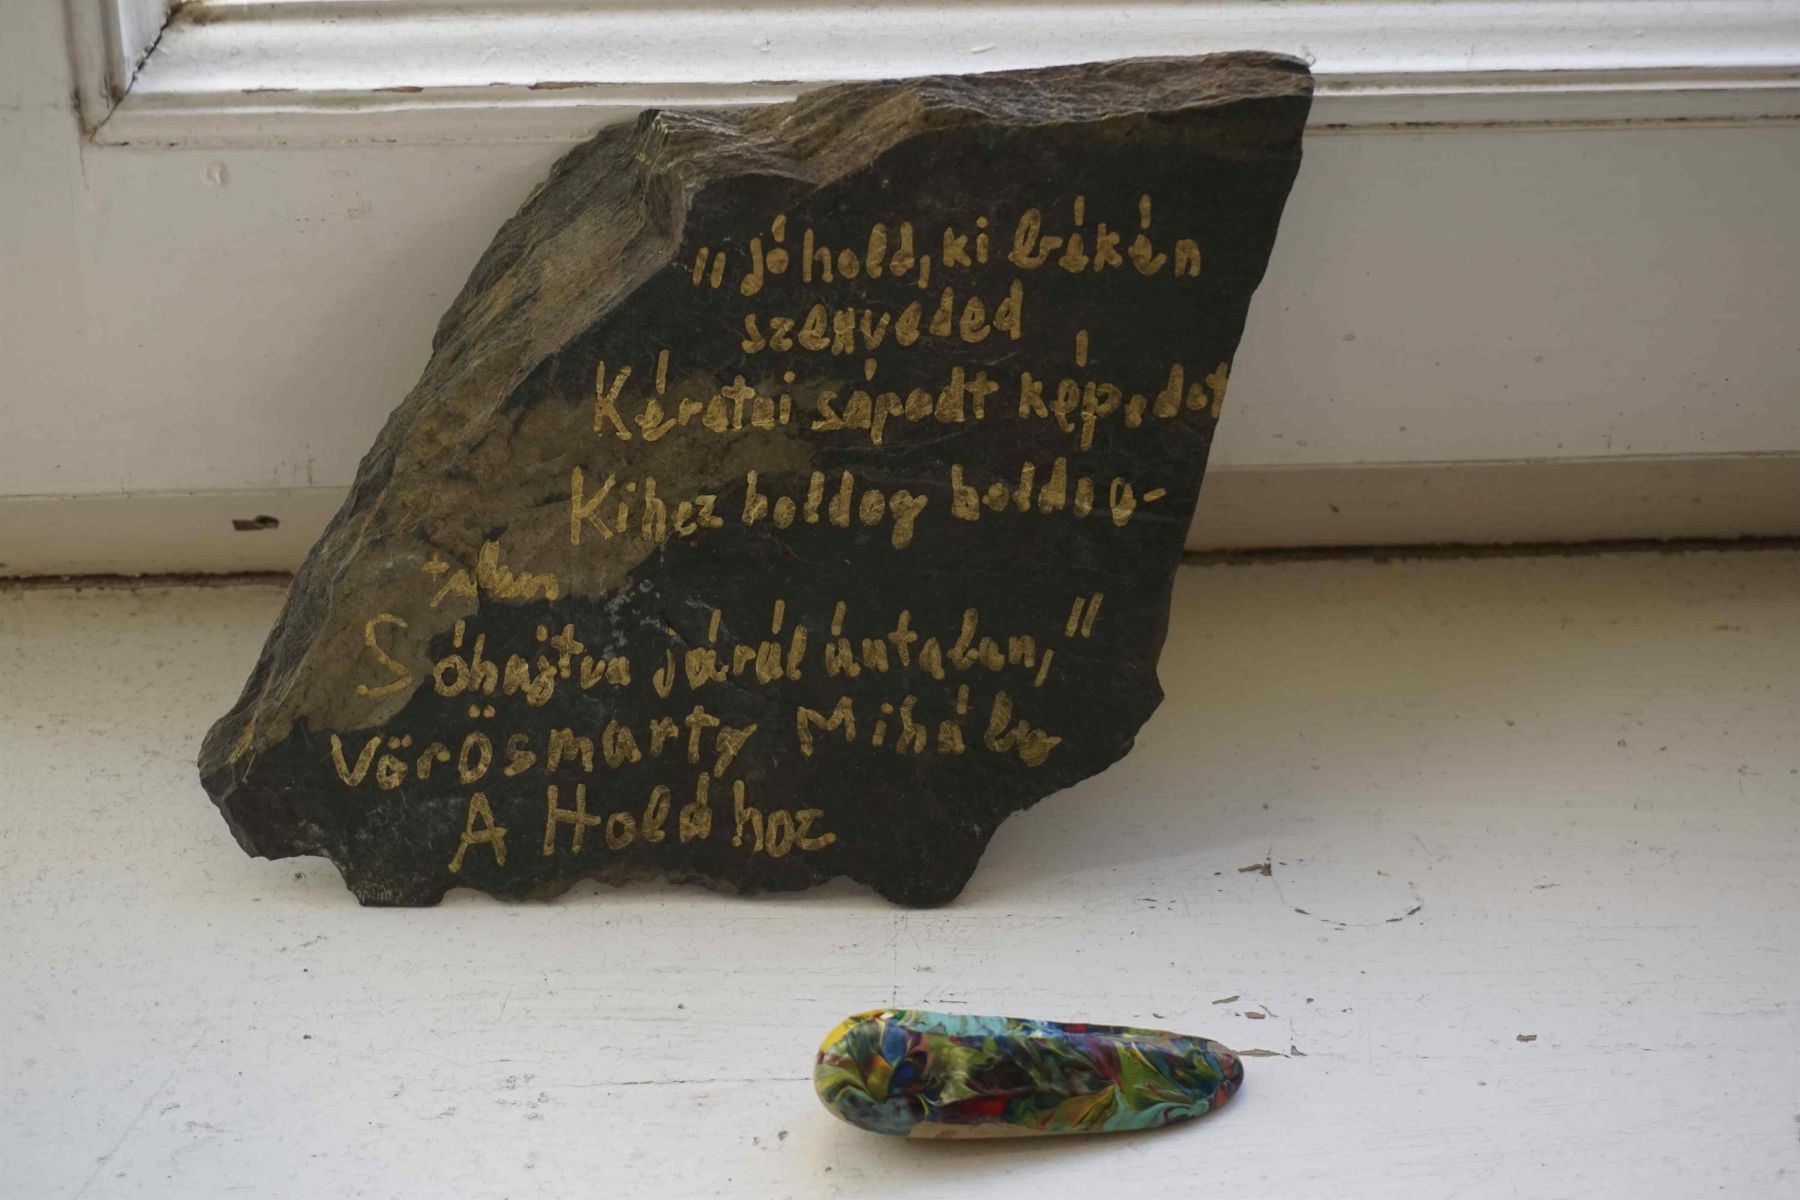 "Jó hold, ki békén
szenveded
Kérat ai sápadt képedet
Kihez boldog boldo a-
talan
Sóhajtva járúl úntalan,"
Vörösmarty Mihály
A Holdhoz